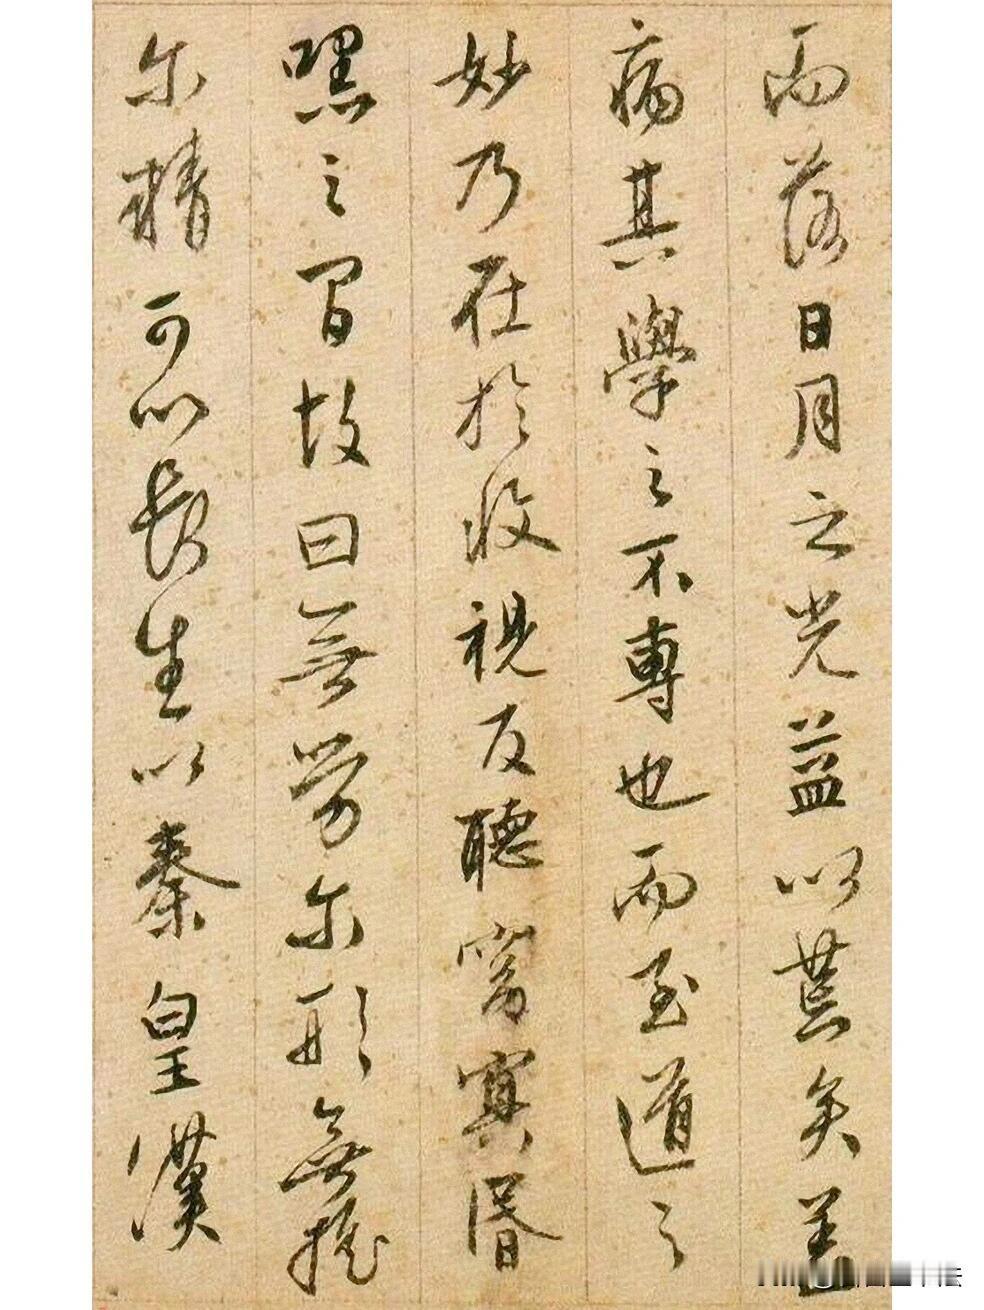 而落日月之光益以荒矣盖
病其學之不專也而至道之
妙乃在於收視反聽窈冥昬
嘿之間故曰無勞尔形無搖
尔精可以長生以秦皇漢